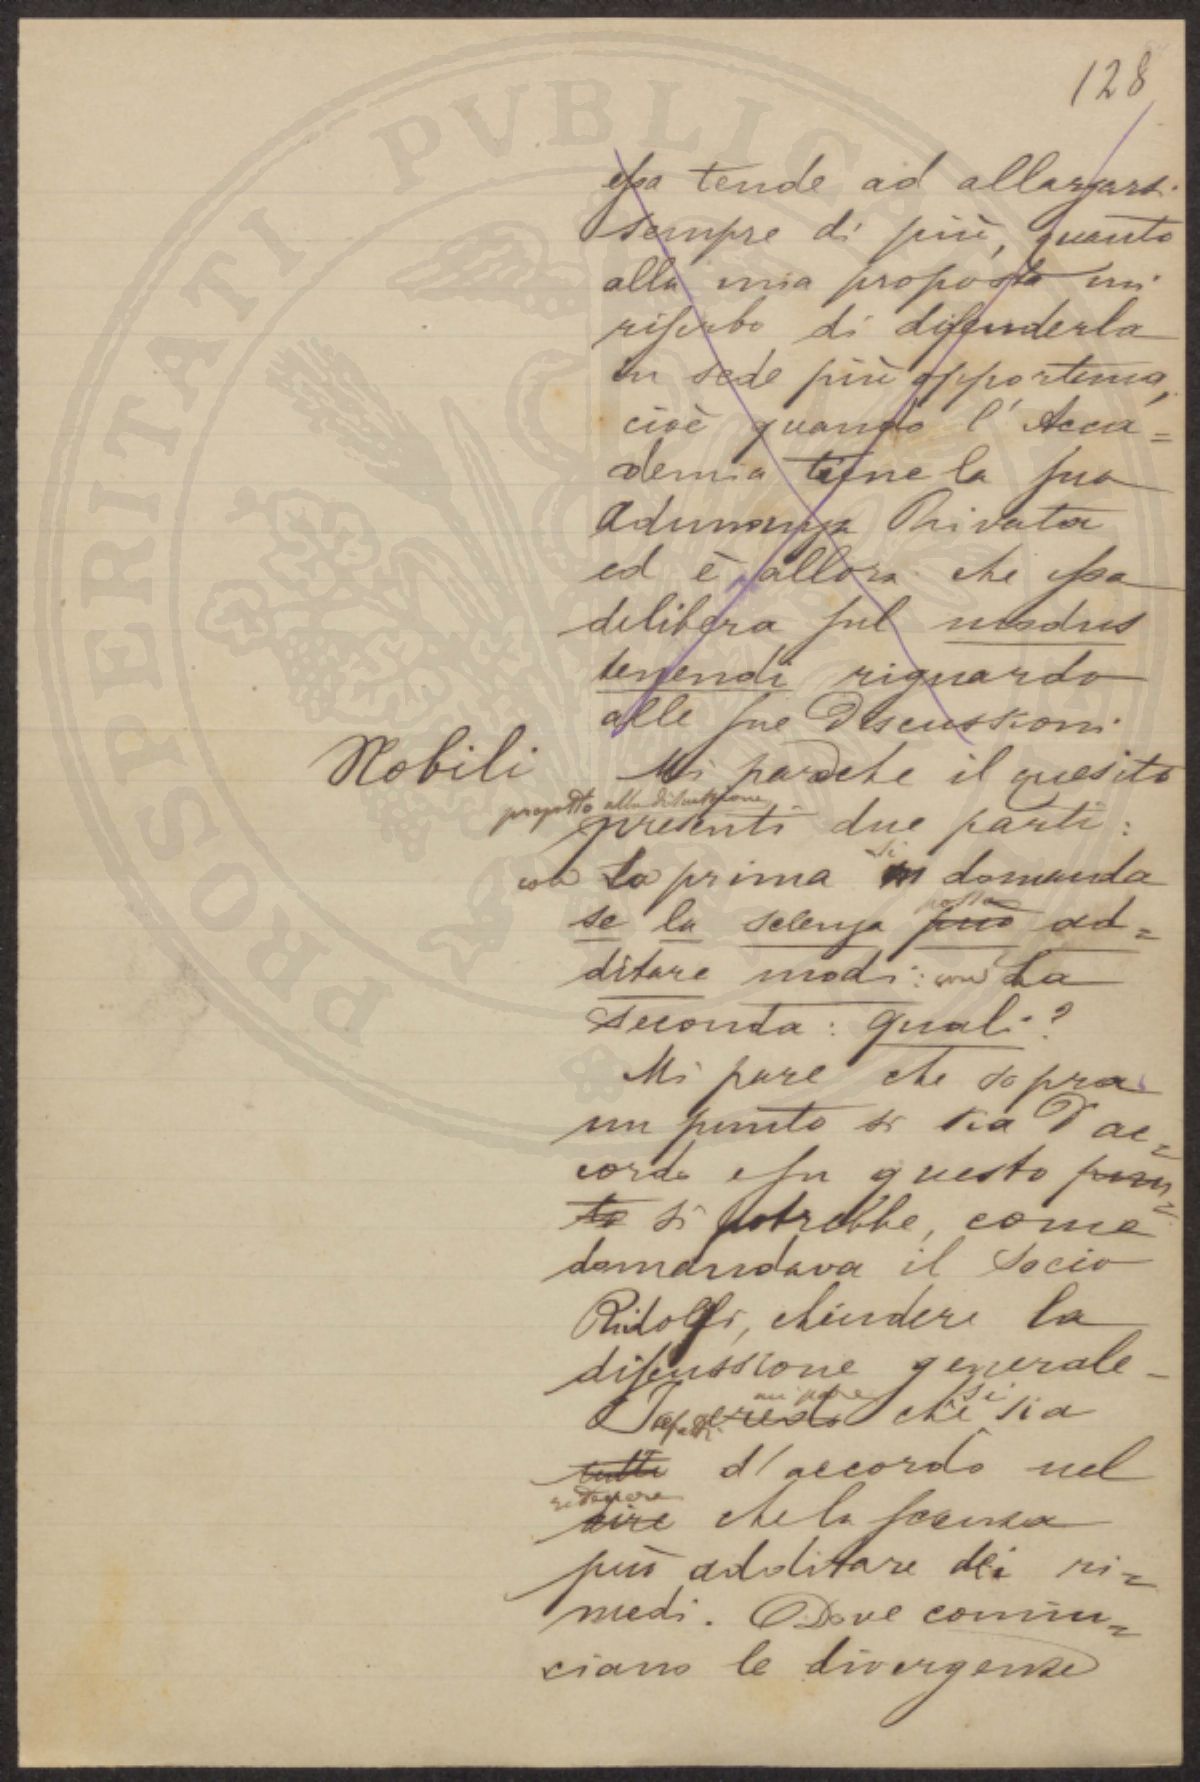 128
essa tende ad allargarsi
sempre di più, quanto
alla mia proposta mi
riserbo di difenderla
in sede più opportuna,
cioè quando l'Acca=
demia tiene la sua
Adunanza Privata
ed è allora che essa
delibera sul modus
tenendi riguardo
alle sue Discussioni.
Nobili Mi pare che il quesito
proposto alla discussione
presenti due parti:
con la prima si domanda
possa
se la scienza può ad=
ditare modi: con La
seconda: quali?
Mi pare che sopra
un punto si sia d'ac=
cordo e su questo pun=
to si potrebbe, come
domandava il socio
Ridolfi, chiudere la
discussione generale-
mi pare si
Infatti credo che sia
tutti d'accordo nel
ritenere
dire che la scienza
può additare dei ri=
medi. Dove comin=
ciano le divergenze
PROSPERITATI PVBLICAE